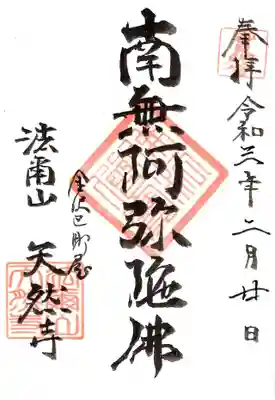 奉拝 令和三年二月廿日
南無阿弥陀佛
金沢区町屋
法爾山 天然寺